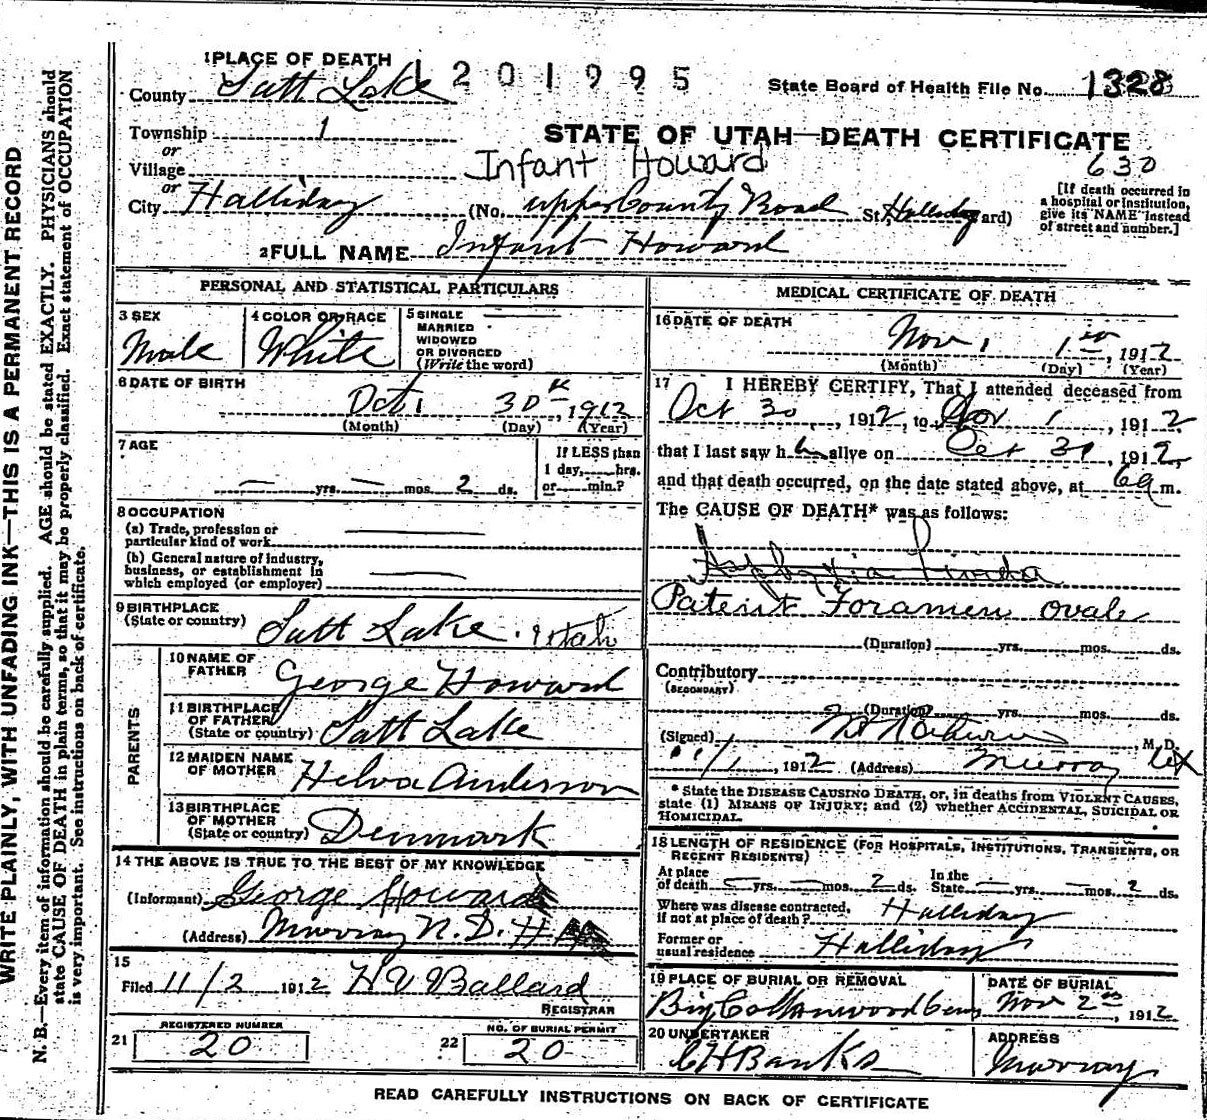 1 PLACE OF DEATH 1201995
County Salt Lake State Board of Health File No. 1328
Township 1 STATE OF UTAH—DEATH CERTIFICATE
or
Village Infant Howard 630
or
City Halliday (No. upper County Road St. Halliday ard)
[If death occurred in
a hospital or institution,
give its NAME instead
of street and number.]
2 FULL NAME Infant Howard
PERSONAL AND STATISTICAL PARTICULARS
3 SEX
Male
4 COLOR OR RACE
White
5 SINGLE
MARRIED
WIDOWED
OR DIVORCED
(Write the word)
6 DATE OF BIRTH
Oct. 30th, 1912
(Month) (Day) (Year)
7 AGE
— yrs. — mos. 2 ds.
If LESS than
1 day, hrs.
or min.?
8 OCCUPATION
(a) Trade, profession or
particular kind of work
(b) General nature of industry,
business, or establishment in
which employed (or employer)
9 BIRTHPLACE
(State or country) Salt Lake. Utah
PARENTS
10 NAME OF
FATHER George Howard
11 BIRTHPLACE
OF FATHER
(State or country) Salt Lake
12 MAIDEN NAME
OF MOTHER Helva Anderson
13 BIRTHPLACE
OF MOTHER
(State or country) Denmark
14 THE ABOVE IS TRUE TO THE BEST OF MY KNOWLEDGE
(Informant) George Howard
(Address) Murray
15
Filed 11/2 1912 H V Ballard
REGISTRAR
21 REGISTERED NUMBER
20
22 NO. OF BURIAL PERMIT
20
MEDICAL CERTIFICATE OF DEATH
16 DATE OF DEATH
Nov. 1st, 1912
(Month) (Day) (Year)
17 I HEREBY CERTIFY, That I attended deceased from
Oct 30, 1912, to Nov 1, 1912
that I last saw h alive on Oct 30, 1912,
and that death occurred, on the date stated above, at 6 a m.
The CAUSE OF DEATH* was as follows:
Patent Foramen ovale
(Duration) yrs. mos. ds.
Contributory
(SECONDARY)
(Duration) yrs. mos. ds.
(Signed) M. D.
11/1, 1912 (Address) Murray Ut
* State the DISEASE CAUSING DEATH, or, in deaths from VIOLENT CAUSES,
state (1) MEANS OF INJURY; and (2) whether ACCIDENTAL, SUICIDAL OR
HOMICIDAL.
18 LENGTH OF RESIDENCE (FOR HOSPITALS, INSTITUTIONS, TRANSIENTS, OR
RECENT RESIDENTS)
At place
of death — yrs. — mos. 2 ds.
In the
State — yrs. — mos. 2 ds.
Where was disease contracted,
if not at place of death? Halliday
Former or
usual residence Halliday
19 PLACE OF BURIAL OR REMOVAL
Big Cottonwood Cem
DATE OF BURIAL
Nov 2nd, 1912
20 UNDERTAKER
C H Banks
ADDRESS
Murray
READ CAREFULLY INSTRUCTIONS ON BACK OF CERTIFICATE
WRITE PLAINLY, WITH UNFADING INK—THIS IS A PERMANENT RECORD
N. B.—Every item of information should be carefully supplied. AGE should be stated EXACTLY. PHYSICIANS should
state CAUSE OF DEATH in plain terms, so that it may be properly classified. Exact statement of OCCUPATION
is very important. See instructions on back of certificate.